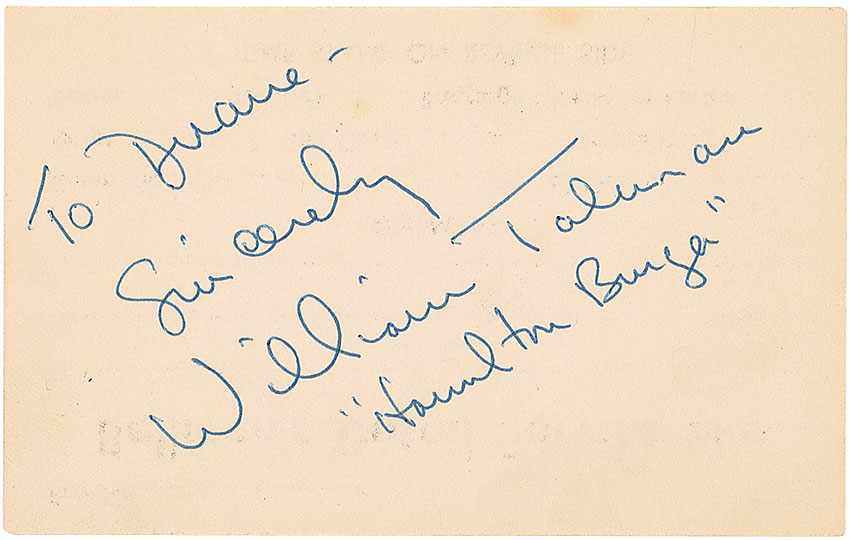 To Duane -
Sincerely
William Talman
"Hamilton Burger"